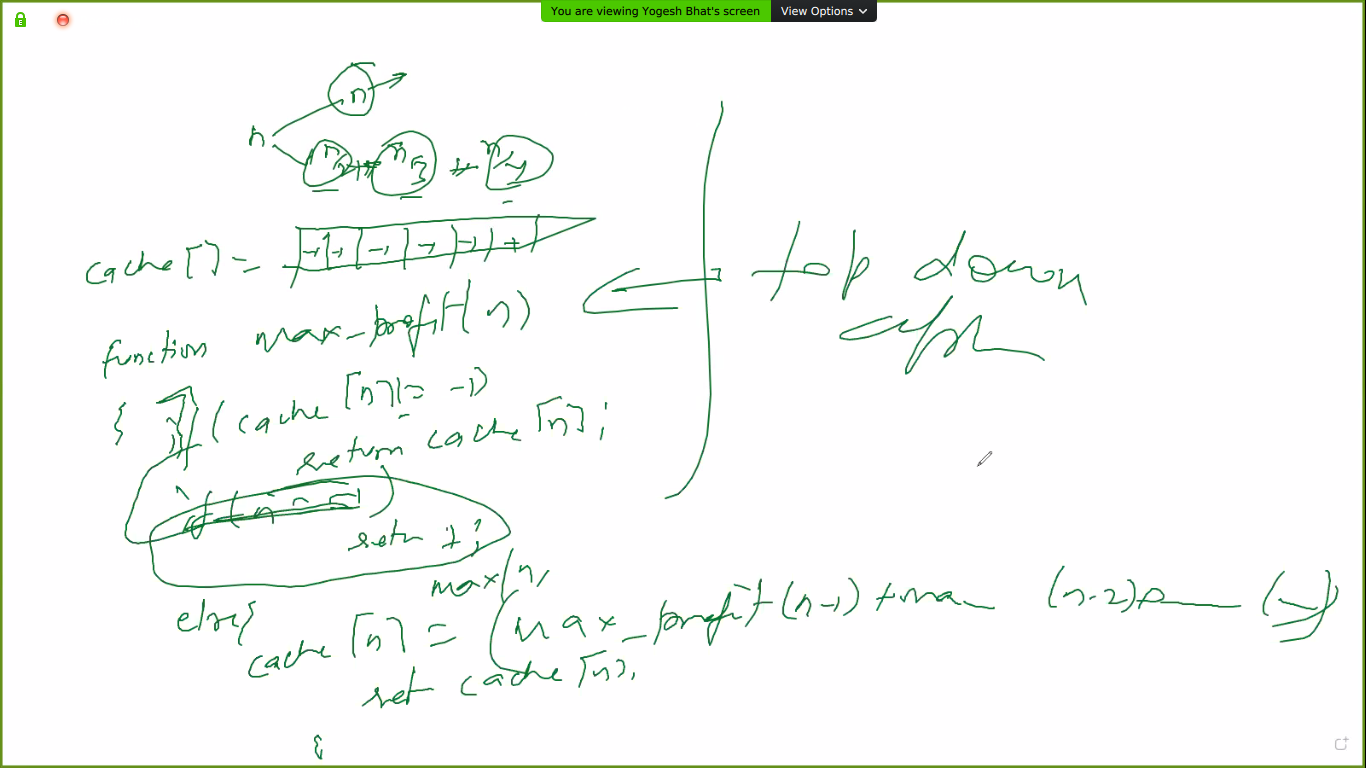 You are viewing Yogesh Bhat's screen View Options
n
n
n/2 + n/3 + n/4
cache[] = -1 -1 -1 -1 -1 -1
top down
function max_profit(n)
{ if (cache[n] != -1)
return cache[n];
if (n
retn 1;
else{
max(n,
cache[n] = (max_profit(n-1) + ma (n-2) ( )
ret cache[n];
}